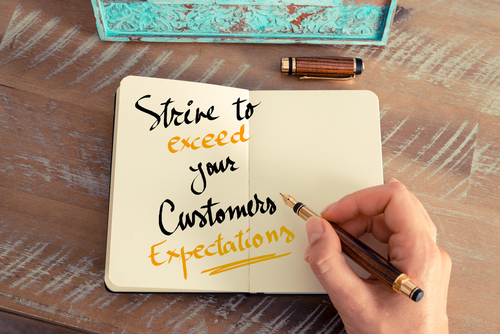 Strive to
exceed
your
Customers
Expectations